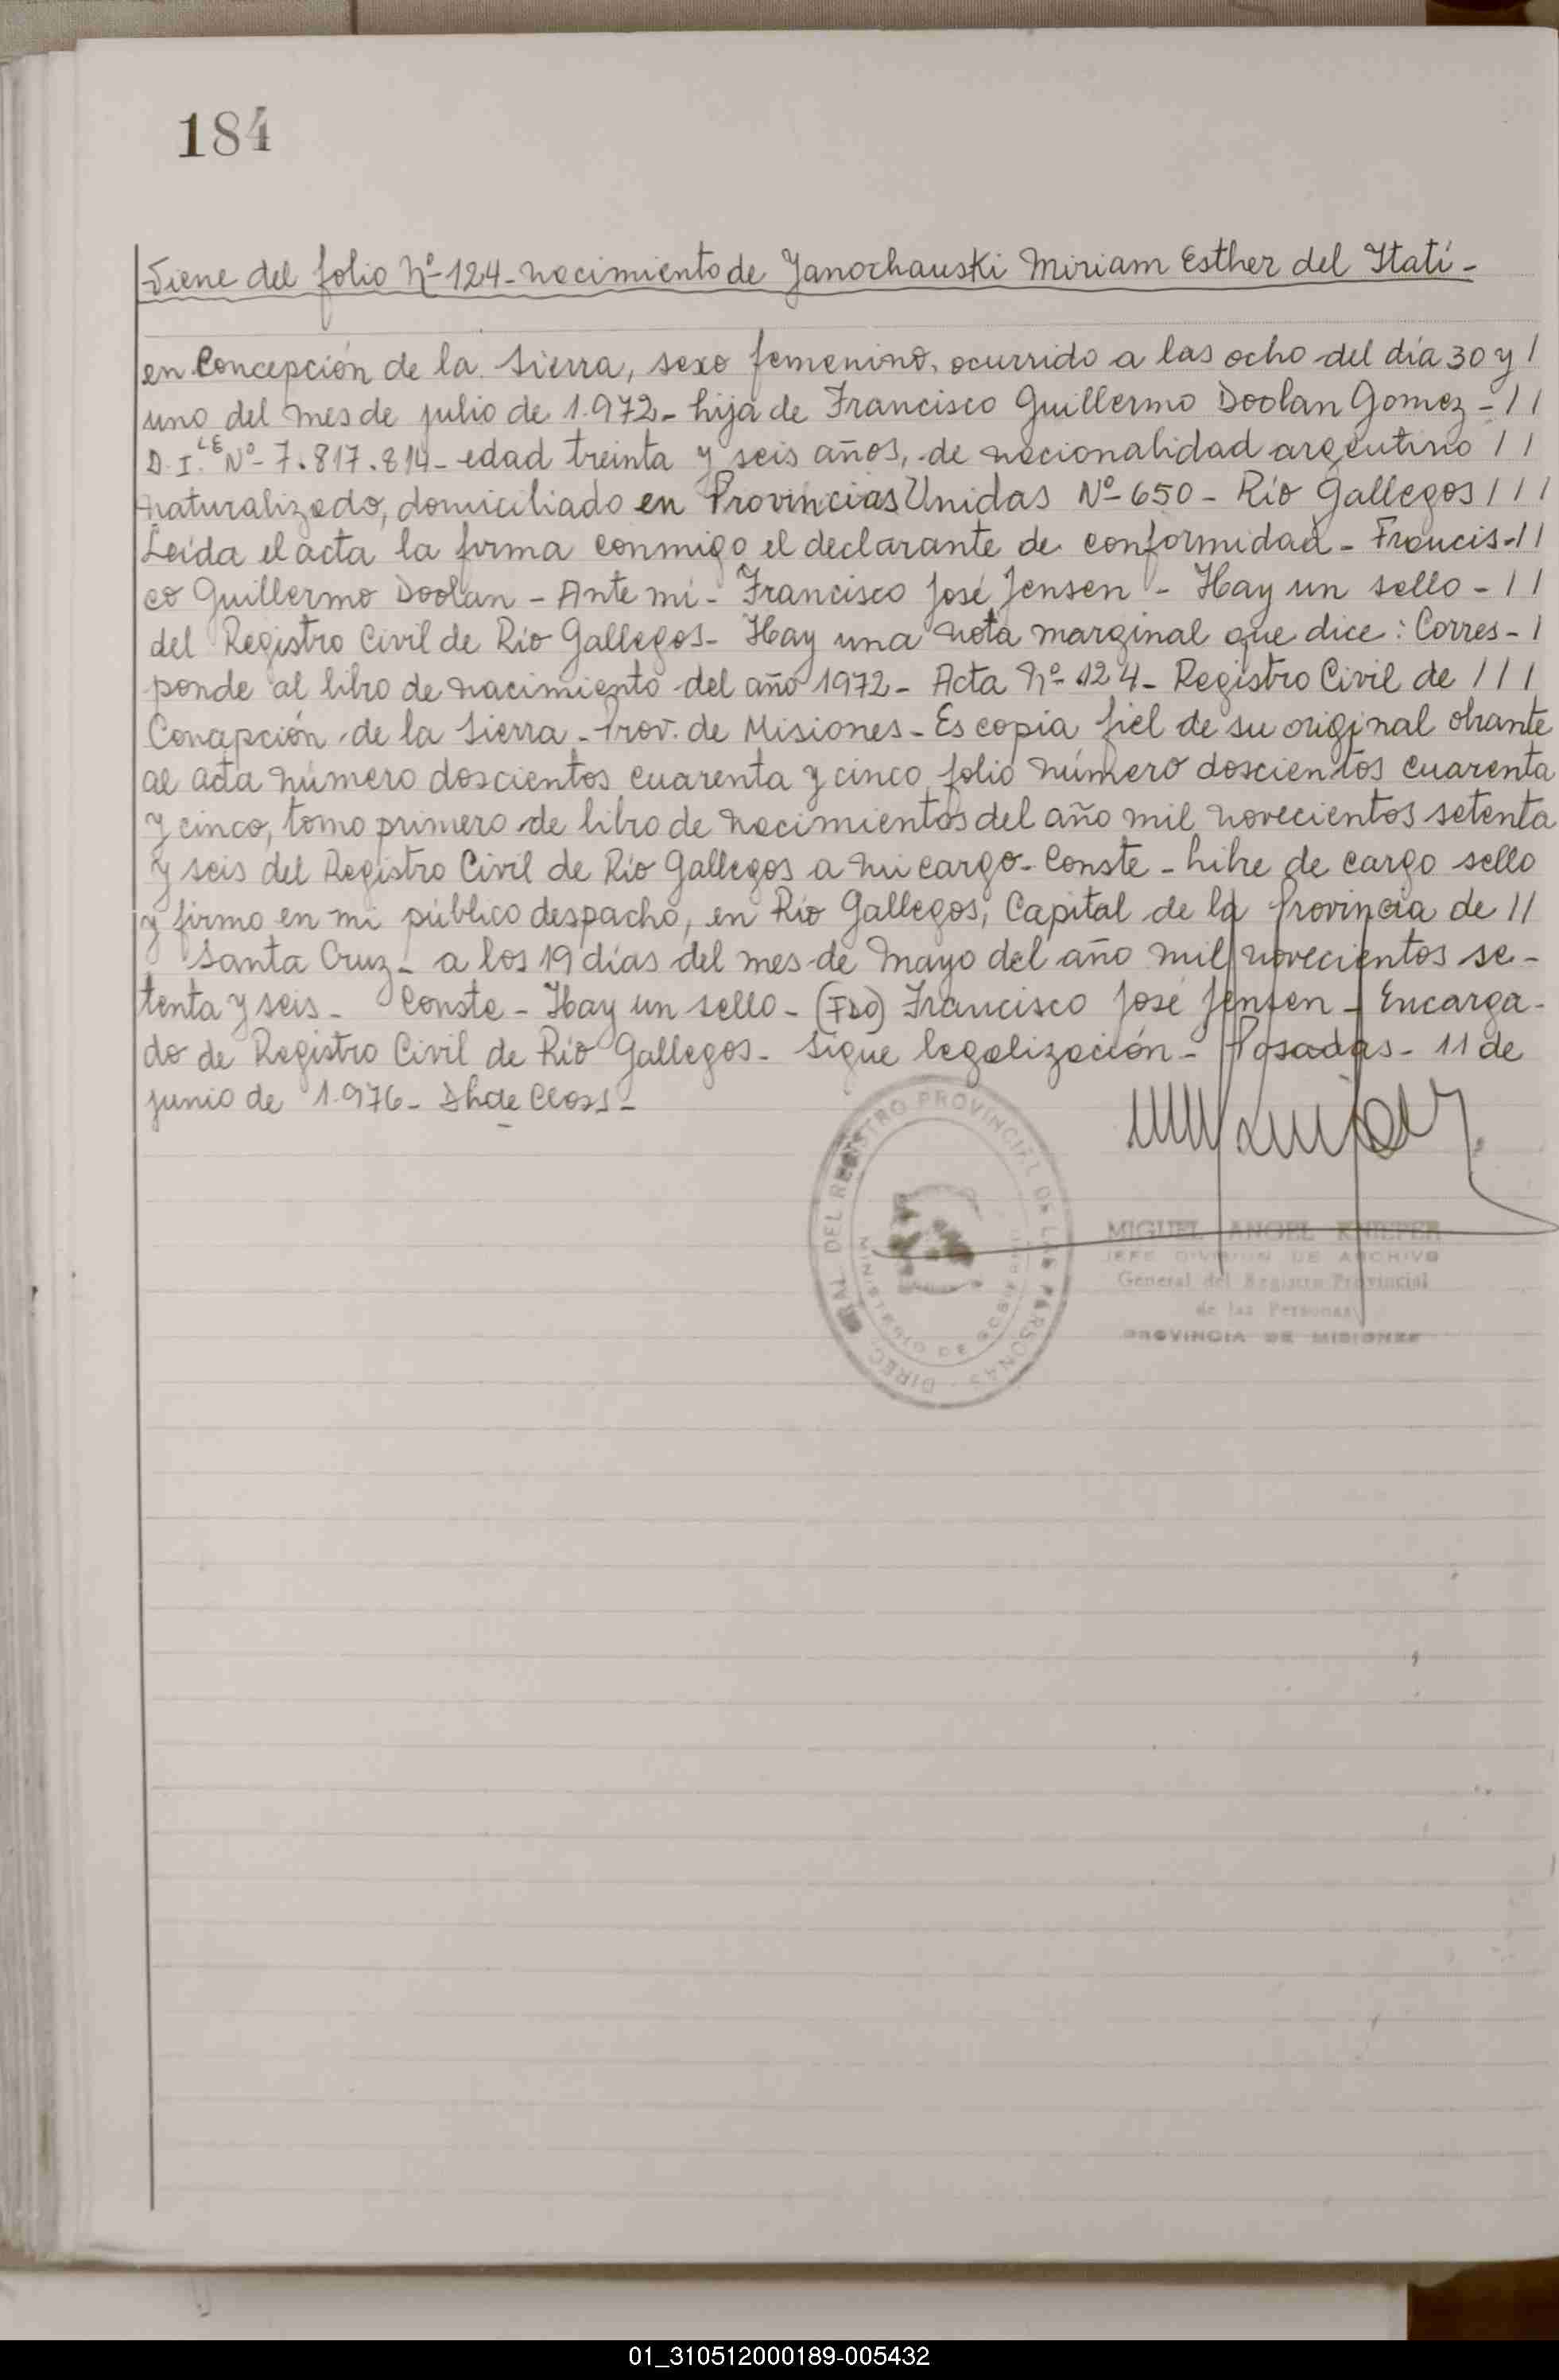 184
Viene del folio Nº-124-nacimiento de Janochauski Miriam Esther del Itatí-
en Concepción de la Sierra, sexo femenino, ocurrido a las ocho del día 30 y /
uno del mes de julio de 1.972- hija de Francisco Guillermo Doolan Gomez - //
D. I. LE Nº- 7.817.814- edad treinta y seis años, de nacionalidad argentino //
naturalizado, domiciliado en Provincias Unidas Nº 650 - Río Gallegos ///
Leída el acta la firma conmigo el declarante de conformidad - Francis-//
co Guillermo Doolan - Ante mí - Francisco José Jensen - Hay un sello - //
del Registro Civil de Río Gallegos- Hay una nota marginal que dice: Corres- /
ponde al libro de nacimiento del año 1972- Acta Nº 124- Registro Civil de ///
Concepción de la Sierra - Prov. de Misiones - Es copia fiel de su original obrante
al acta número doscientos cuarenta y cinco folio número doscientos cuarenta
y cinco, tomo primero de libro de nacimientos del año mil novecientos setenta
y seis del Registro Civil de Río Gallegos a mi cargo- Conste - Libre de cargo sello
y firmo en mi público despacho, en Río Gallegos, Capital de la Provincia de //
Santa Cruz - a los 19 días del mes de Mayo del año mil novecientos se-
tenta y seis - Conste - Hay un sello - (FDO) Francisco José Jensen - Encarga-
do de Registro Civil de Río Gallegos- Sigue legalización - Posadas - 11 de
junio de 1.976-
DIREC. GRAL. DEL REGISTRO PROVINCIAL DE LAS PERSONAS
MINISTERIO DE GOBIERNO
MIGUEL ANGEL KNIEPER
JEFE DIVISION DE ARCHIVO
General del Registro Provincial
de las Personas
PROVINCIA DE MISIONES
01_310512000189-005432